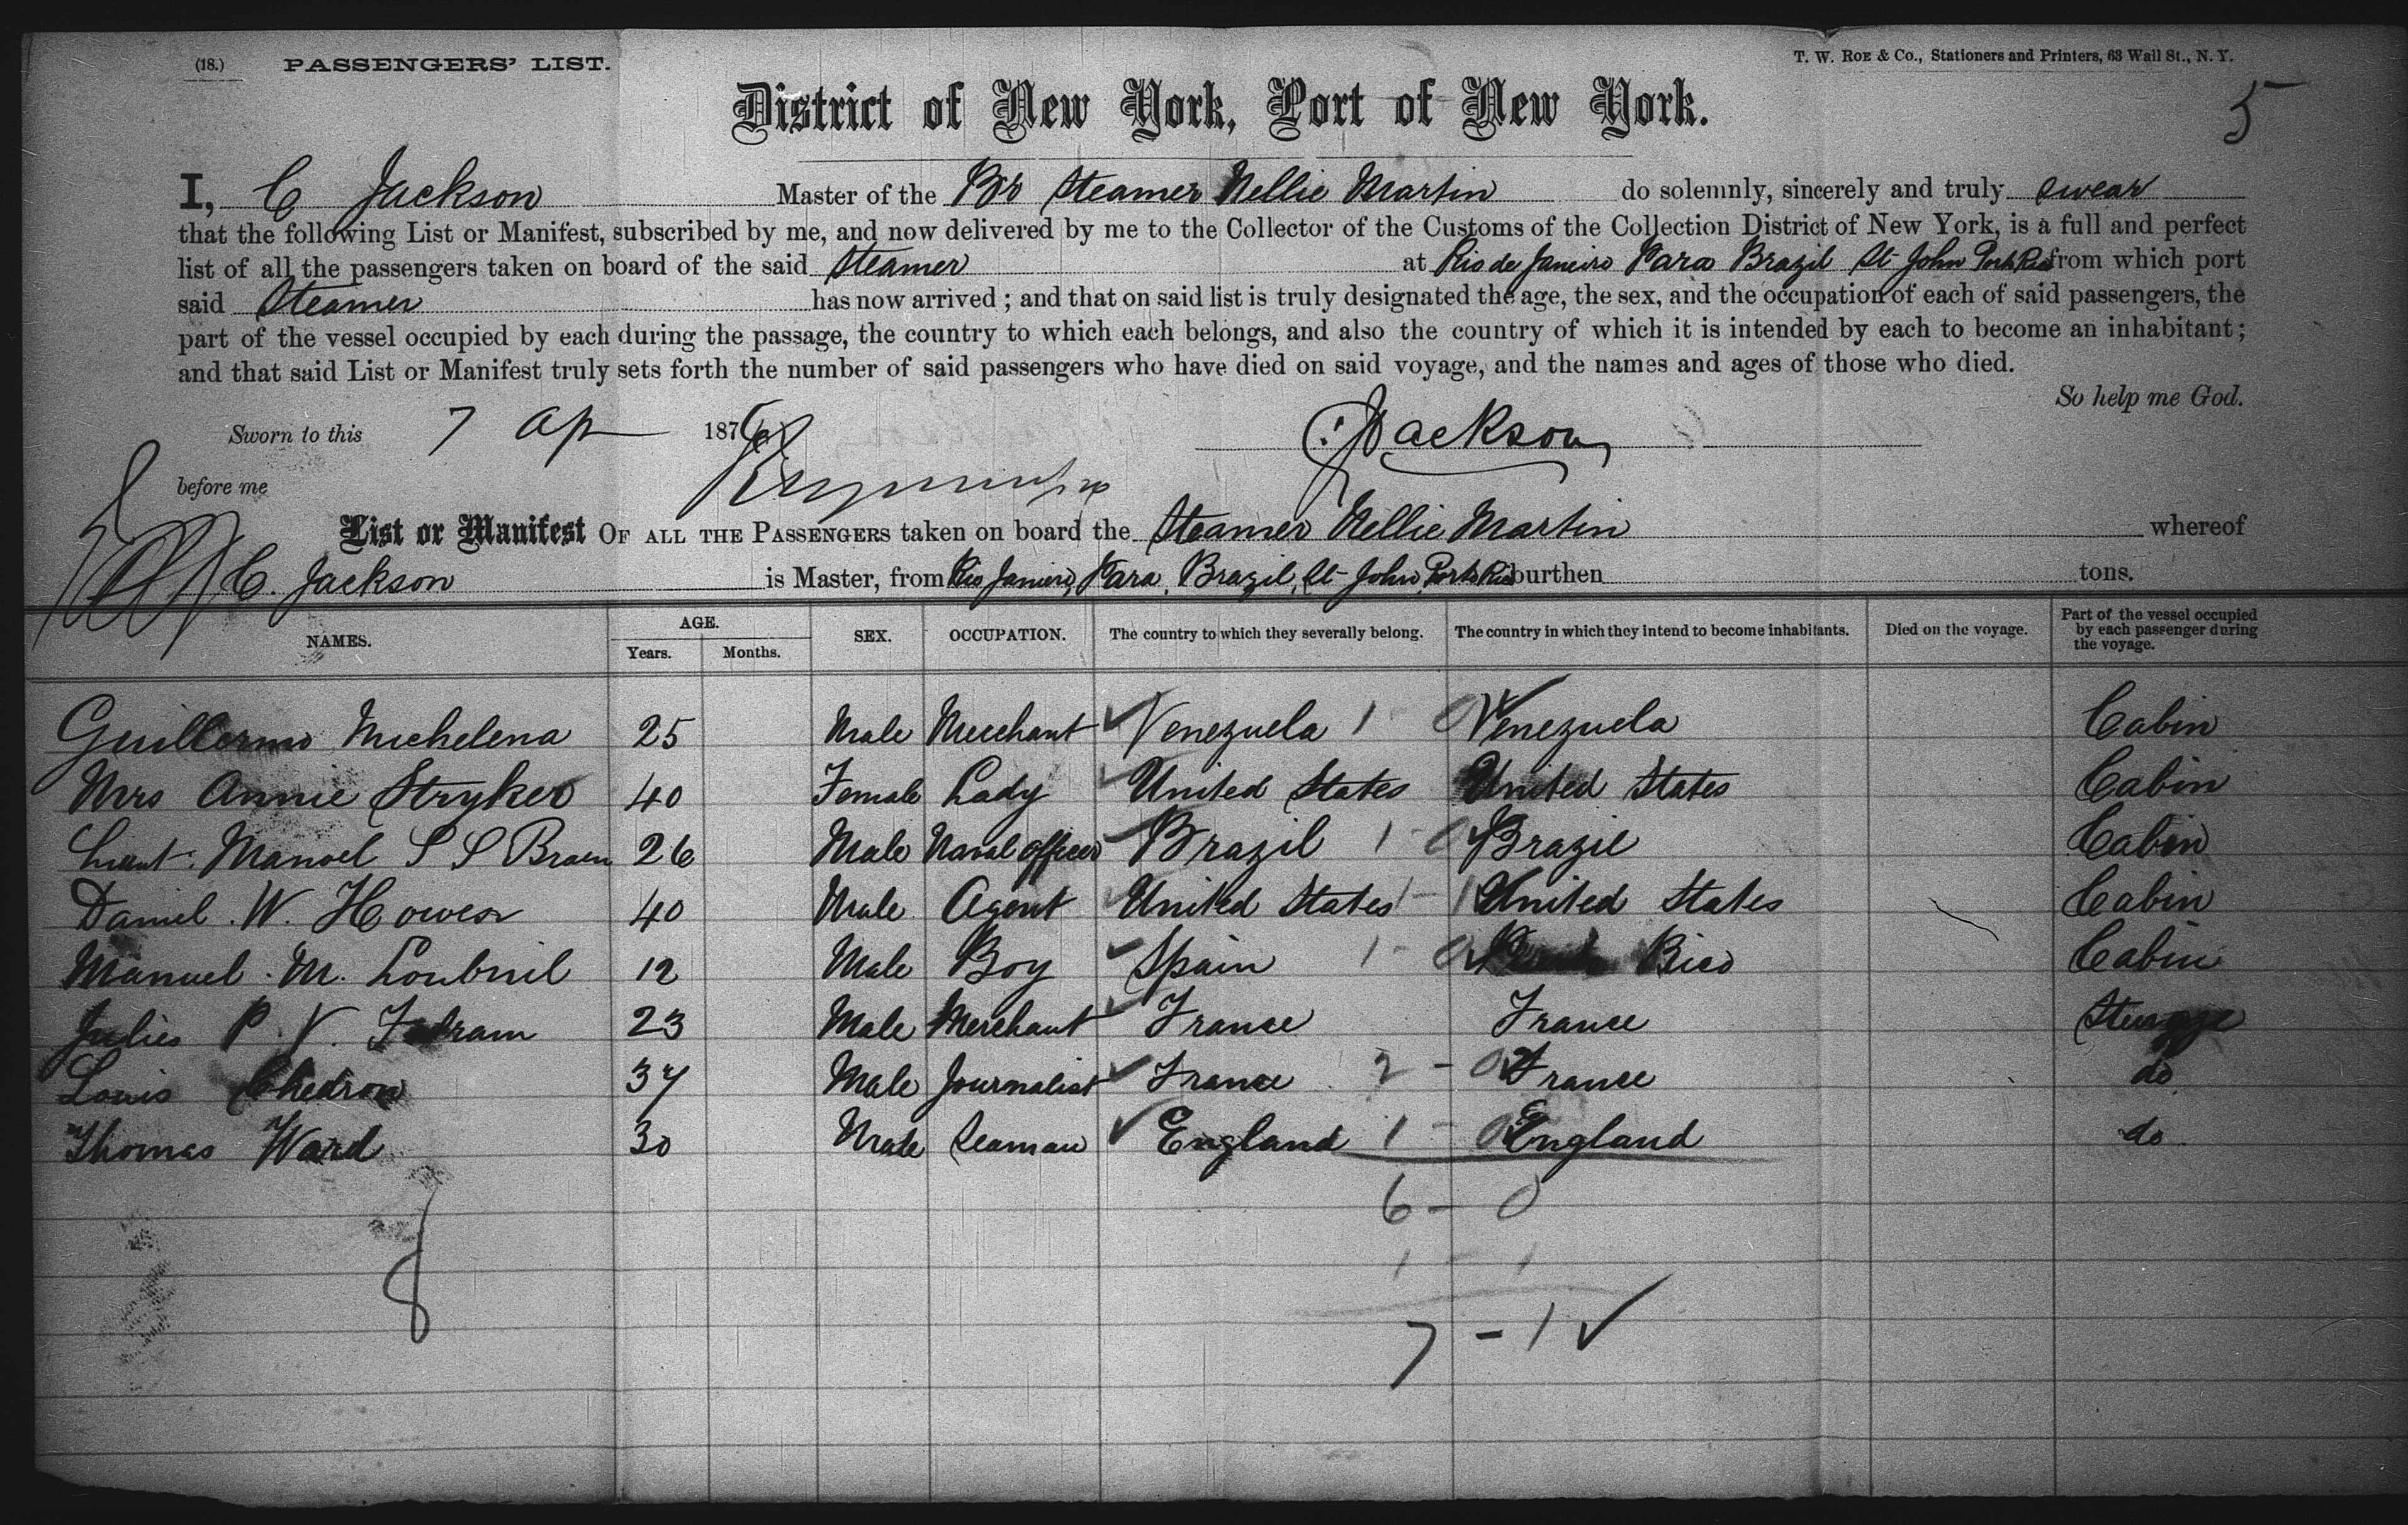 (18.) PASSENGERS' LIST.
T. W. ROE & Co., Stationers and Printers, 63 Wall St., N. Y.
5
District of New York, Port of New York.
I, C Jackson Master of the Br Steamer Nellie Martin do solemnly, sincerely and truly swear
that the following List or Manifest, subscribed by me, and now delivered by me to the Collector of the Customs of the Collection District of New York, is a full and perfect
list of all the passengers taken on board of the said Steamer at Rio de Janeiro Para Brazil St John Porto Rico from which port
said Steamer has now arrived; and that on said list is truly designated the age, the sex, and the occupation of each of said passengers, the
part of the vessel occupied by each during the passage, the country to which each belongs, and also the country of which it is intended by each to become an inhabitant;
and that said List or Manifest truly sets forth the number of said passengers who have died on said voyage, and the names and ages of those who died.
So help me God.
Sworn to this 7 Ap 1876 C Jackson
before me
List or Manifest OF ALL THE PASSENGERS taken on board the Steamer Nellie Martin whereof
C. Jackson is Master, from Rio Janiero, Para, Brazil, St John, Porto Rico burthen tons.
NAMES. AGE. Years. Months. SEX. OCCUPATION. The country to which they severally belong. The country in which they intend to become inhabitants. Died on the voyage. Part of the vessel occupied by each passenger during the voyage.
Guillermo Michelena 25 Male Merchant Venezuela 1 - 0 Venezuela Cabin
Mrs Annie Stryker 40 Female Lady United States United States Cabin
Lieut. Manoel S S 26 Male Naval officer Brazil 1 - 0 Brazil Cabin
Daniel. W. 40 Male Agent United States 1 - 1 United States Cabin
Manuel. M. Loubriel 12 Male Boy Spain 1 - 0 Rico Cabin
Julies P. V. 23 Male Merchant France France Sturage
Louis Chedron 37 Male Journalist France 2 - 0 France do
Thomas Ward 30 Male Seaman England 1 - 0 England do
6 - 0
1 - 1
8
7 - 1 ✓